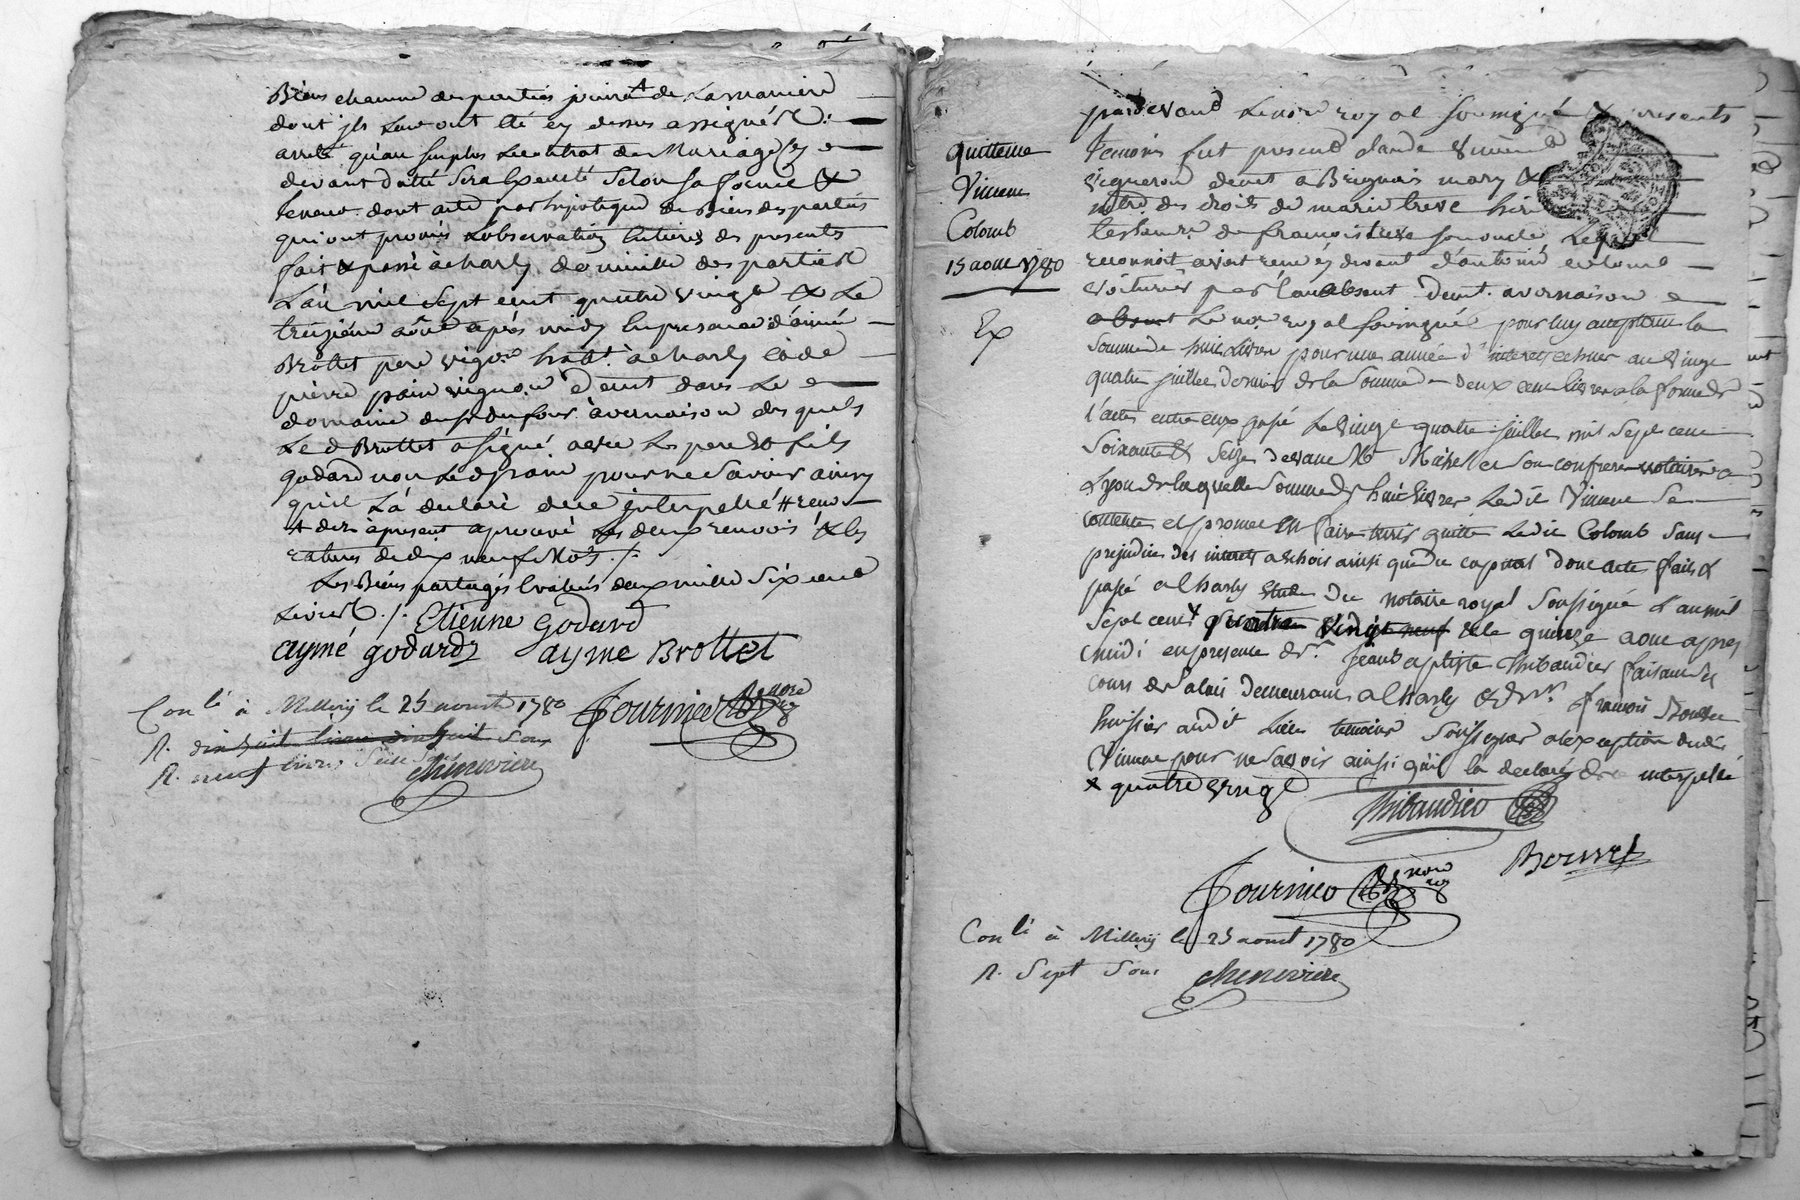 Biens chacune des parties jouira de la maniere
dont ils leur ont été cy dessus assignés &
arreté qu'au surplus le contrat de Mariage cy
devant datté sera Executé selon sa forme &
teneur dont acte par hipoteque de Biens des parties
qui ont promis L'observation Entiere des presents
fait & passé a charly domicille des parties
L'an mil sept cent quatre vingt & Le
treizieme aout apres midy En presence d'aimé
Brottet pere vigon habt à charly & de
pierre pain vigneron demt dans Le
domaine du sr dufour a vernaison des quels
Le d Brottet a signé avec Les pere & fils
godard non Le d pain pour ne savoir ainsy
qu'il L'a declaré de ce interpellé # renv
# dez à présent aprouvé Les deux renvois & les
ratures de dix neuf Mots ./.
Les Biens partagés Evalués deux mille six cent
Livres ./. Etienne Godard
aymé godard ayme Brottet
Conlé à Millery le 25 aoust 1780 Fournier nore
R. dixhuit livres dixhuit sous
R. neuf livres seize sous chenevriere
pardevant Le nore royal soussigné & presents
quittance
Vincent
Colomb
15 aout 1780
Ex
Temoins fut present claude Vincend
vigneron demt a Brignais mary &
mtre des droits de marie treve heri
testamre de francois treve son oncle Lequel
reconnoit avoir recu cy devant d'antoine colomb
voiturier par l'eau absent demt a vernaison
absent Le nore royal soussigné pour luy acceptant la
somme de huit Livres pour une année d'interets echue au vingt
quatre juillet dernier de la Somme de deux cent livres a la forme de
l'acte entre eux passé Le vingt quatre juillet mil sept cent
soixante & seize devant Me Michel et son confrere notaires a
Lyon de laquelle somme de huit livres Ledit Vincent se
contente et promet En faire tenir quitte Ledit Colomb sans
prejudice des interets a echoir ainsi que du capital Dont acte fait &
passé a Charly etude du notaire royal Soussigné L'an mil
Sept cent x quatre vingt neuf & le quinze aout apres
midi en presence de sr Jean baptiste thibaudier faisant des
cours de Palais Demeurant a Charly & de sr francois Bouvet
huissier audit Lieu temoins Soussignés a l'exception dudit
Vincent pour ne Savoir ainsi qu'il la declaré de ce interpellé
x quatre vingt
Thibaudier
Bouvet
Fournier nore
Conlé à Millery le 25 aoust 1780
R. Sept Sous chenevriere